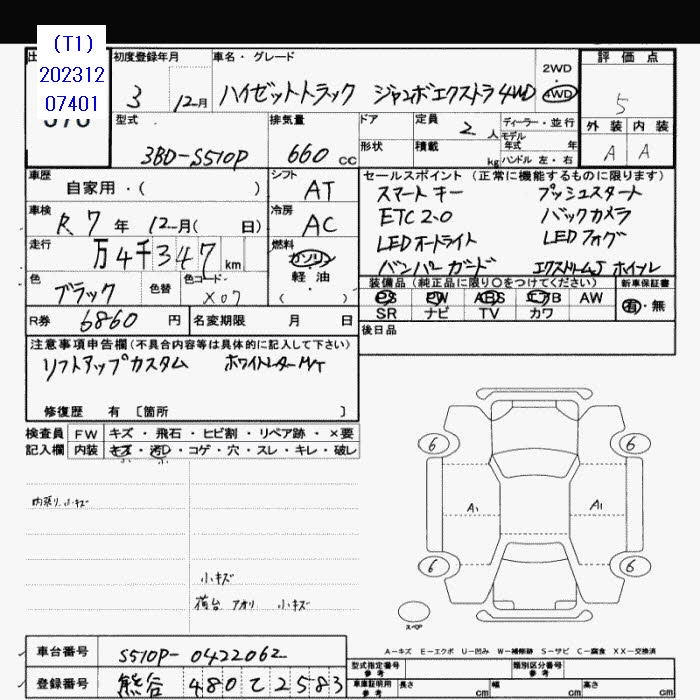 (T1)
202312
07401
初度登録年月
3 12月
車名・グレード
ハイゼットトラック ジャンボエクストラ 4WD
2WD
4WD
評価点
5
外装 内装
A A
型式
3BD-S510P
排気量
660 cc
ドア
形状
定員 2 人
積載 kg
ディーラー・並行
モデル年式 年
ハンドル 左・右
車歴
自家用・( )
シフト
AT
セールスポイント (正常に機能するものに限ります)
スマートキー プッシュスタート
ETC2.0 バックカメラ
LEDオートライト LEDフォグ
バンパーガード エクストリームJ ホイール
車検
R7年 12月( 日)
冷房
AC
走行
万4千347 km
燃料
ガソリン
軽・油
( )
色
ブラック
色替
色コード
X07
装備品 (純正品に限り○をつけてください)
新車保証書
PS PW ABS エアB AW
有・無
SR ナビ TV カワ
R券 6860 円
名変期限 月 日
後日品
注意事項申告欄(不具合内容等は具体的に記入して下さい)
リフトアップカスタム ホワイトレターM/T
修復歴 有 [箇所 ]
検査員
記入欄
FW キズ・飛石・ヒビ割・リペア跡・×要
内装 キズ・汚レ・コゲ・穴・スレ・キレ・破レ
内張り小キズ
小キズ
荷台 アオリ 小キズ
6 6
A1 A1
6 6
スペア
A-キズ E-エクボ U-凹み W-補修跡 S-サビ C-腐食 XX-交換済
車台番号 S510P-0422062
登録番号 熊谷 480 て 2583
型式指定番号
参考
類別区分番号
参考
車庫証明用
参考
長さ cm 幅 cm 高さ cm